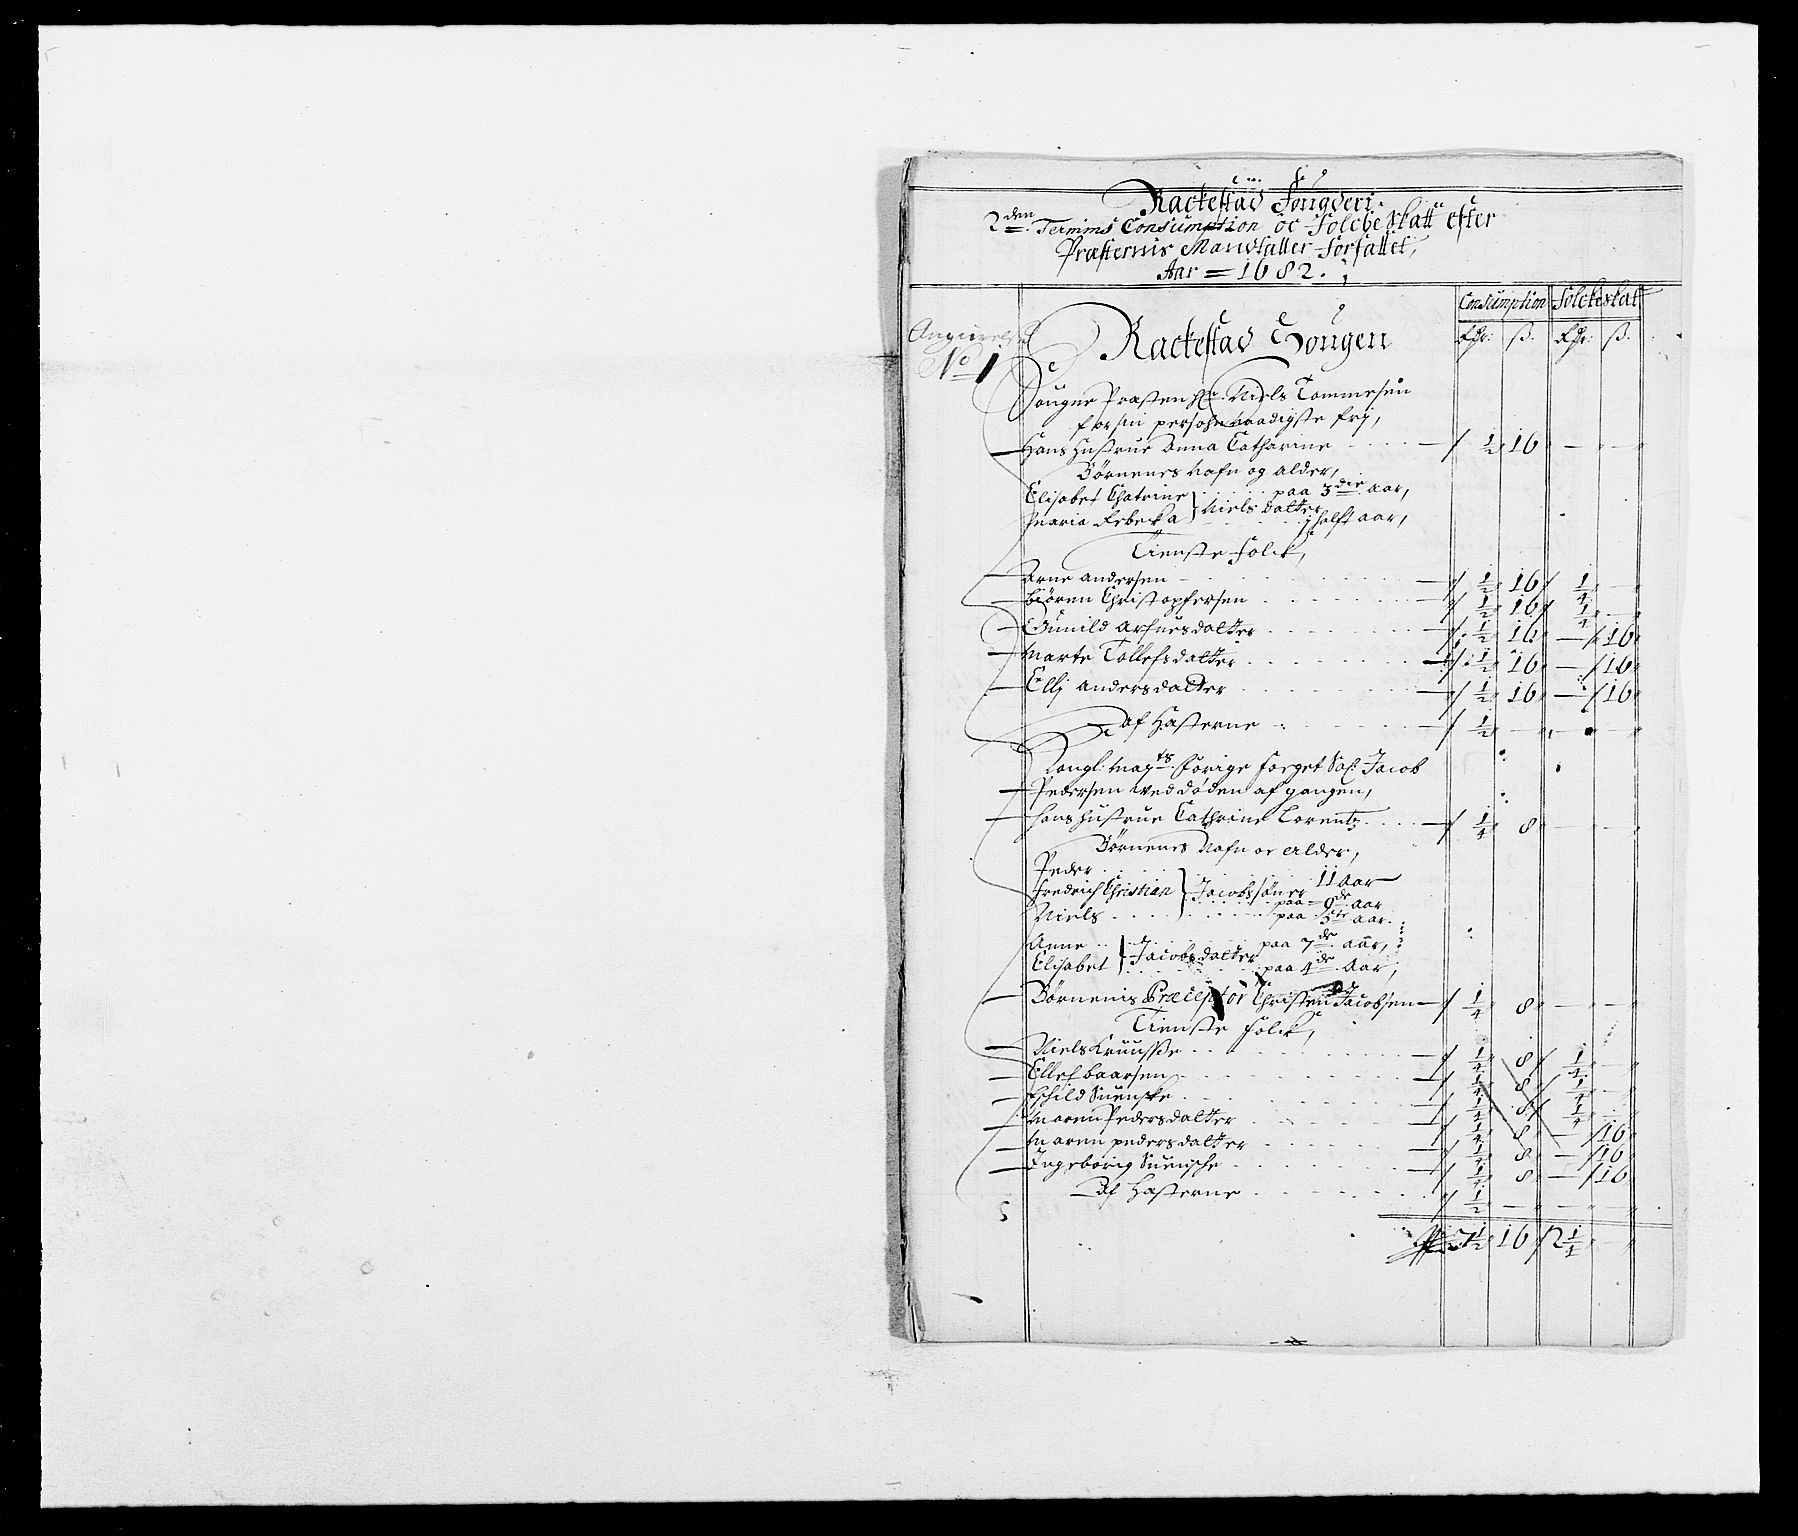 Rackestad Fougderi
2den Termins Consumption oc Folcheskatt efter
Præsternis Mandtaller forfattet,
Aar = 1682.
Consumption Folckeskatt
Rdr: ß. Rdr: ß.
Angivelse
No 1
Rackestad Sougen
Sougne Præsten Hr. Niels Tommesøn
for sin persohn naadigste frj,
Hans Hustrue Anna Catharine 1/2 16 — —
Børnenes Nafn og alder,
Elisabet Chatrine } Niels datter paa 3die aar,
Maria Rebecka } halft aar,
Tienste Folck,
Arne Andersen 1/2 16 1/4 —
Biören Christopfersen 1/2 16 1/4 —
Gunild Arfuesdatter 1/2 16 — 16
Marte Tollefsdatter 1/2 16 — 16
Ellj Andersdatter 1/2 16 — 16
af Hæsterne 1/2 — — —
Kongl: Mayts forige foeget Sal: Jacob
Pedersen ved døden afgangen,
Hans Hustrue Cathrine Lorentz 1/4 8 — —
Børnenes Nafn oc Alder,
Peder
Fredrich Christian } Jacobssöner 11 Aar
paa 9de Aar
Niels paa 5te aar
Anne } Jacobsdatter paa 7de aar,
Elisabet } paa 4de Aar,
Børnenis Præceptor Christen Jacobsen 1/4 8 — —
Tienste folck,
Niels Kruusse 1/4 8 1/4 —
Ellef baarsen 1/4 8 1/4 —
Eschild Suenske 1/4 8 1/4 —
Maren Pedersdatter 1/4 8 — 16
Maren pedersdatter 1/4 8 — 16
Ingeborig Suensche 1/4 8 — 16
Af Hæsterne 1/2 — — —
7 1/2 16 2 1/4 —